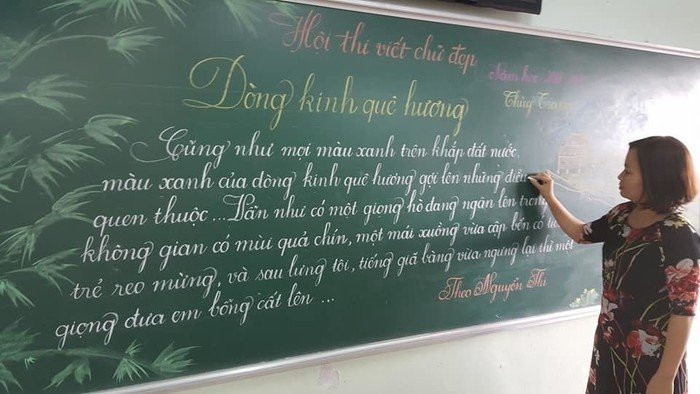 Hội thi viết chữ đẹp
Năm học
Thùy Trang
Dòng kinh quê hương
Cũng như mọi màu xanh trên khắp đất nước,
màu xanh của dòng kinh quê hương gợi lên những điều
quen thuộc ... Dần như có một giọng hò đang ngân lên trong
không gian có mùi quả chín, một mái xuồng vừa cập bến có
trẻ reo mừng, và sau lưng tôi, tiếng giã bàng vừa ngưng lại thì một
giọng đưa em bỗng cất lên ...
Theo Nguyễn Thi